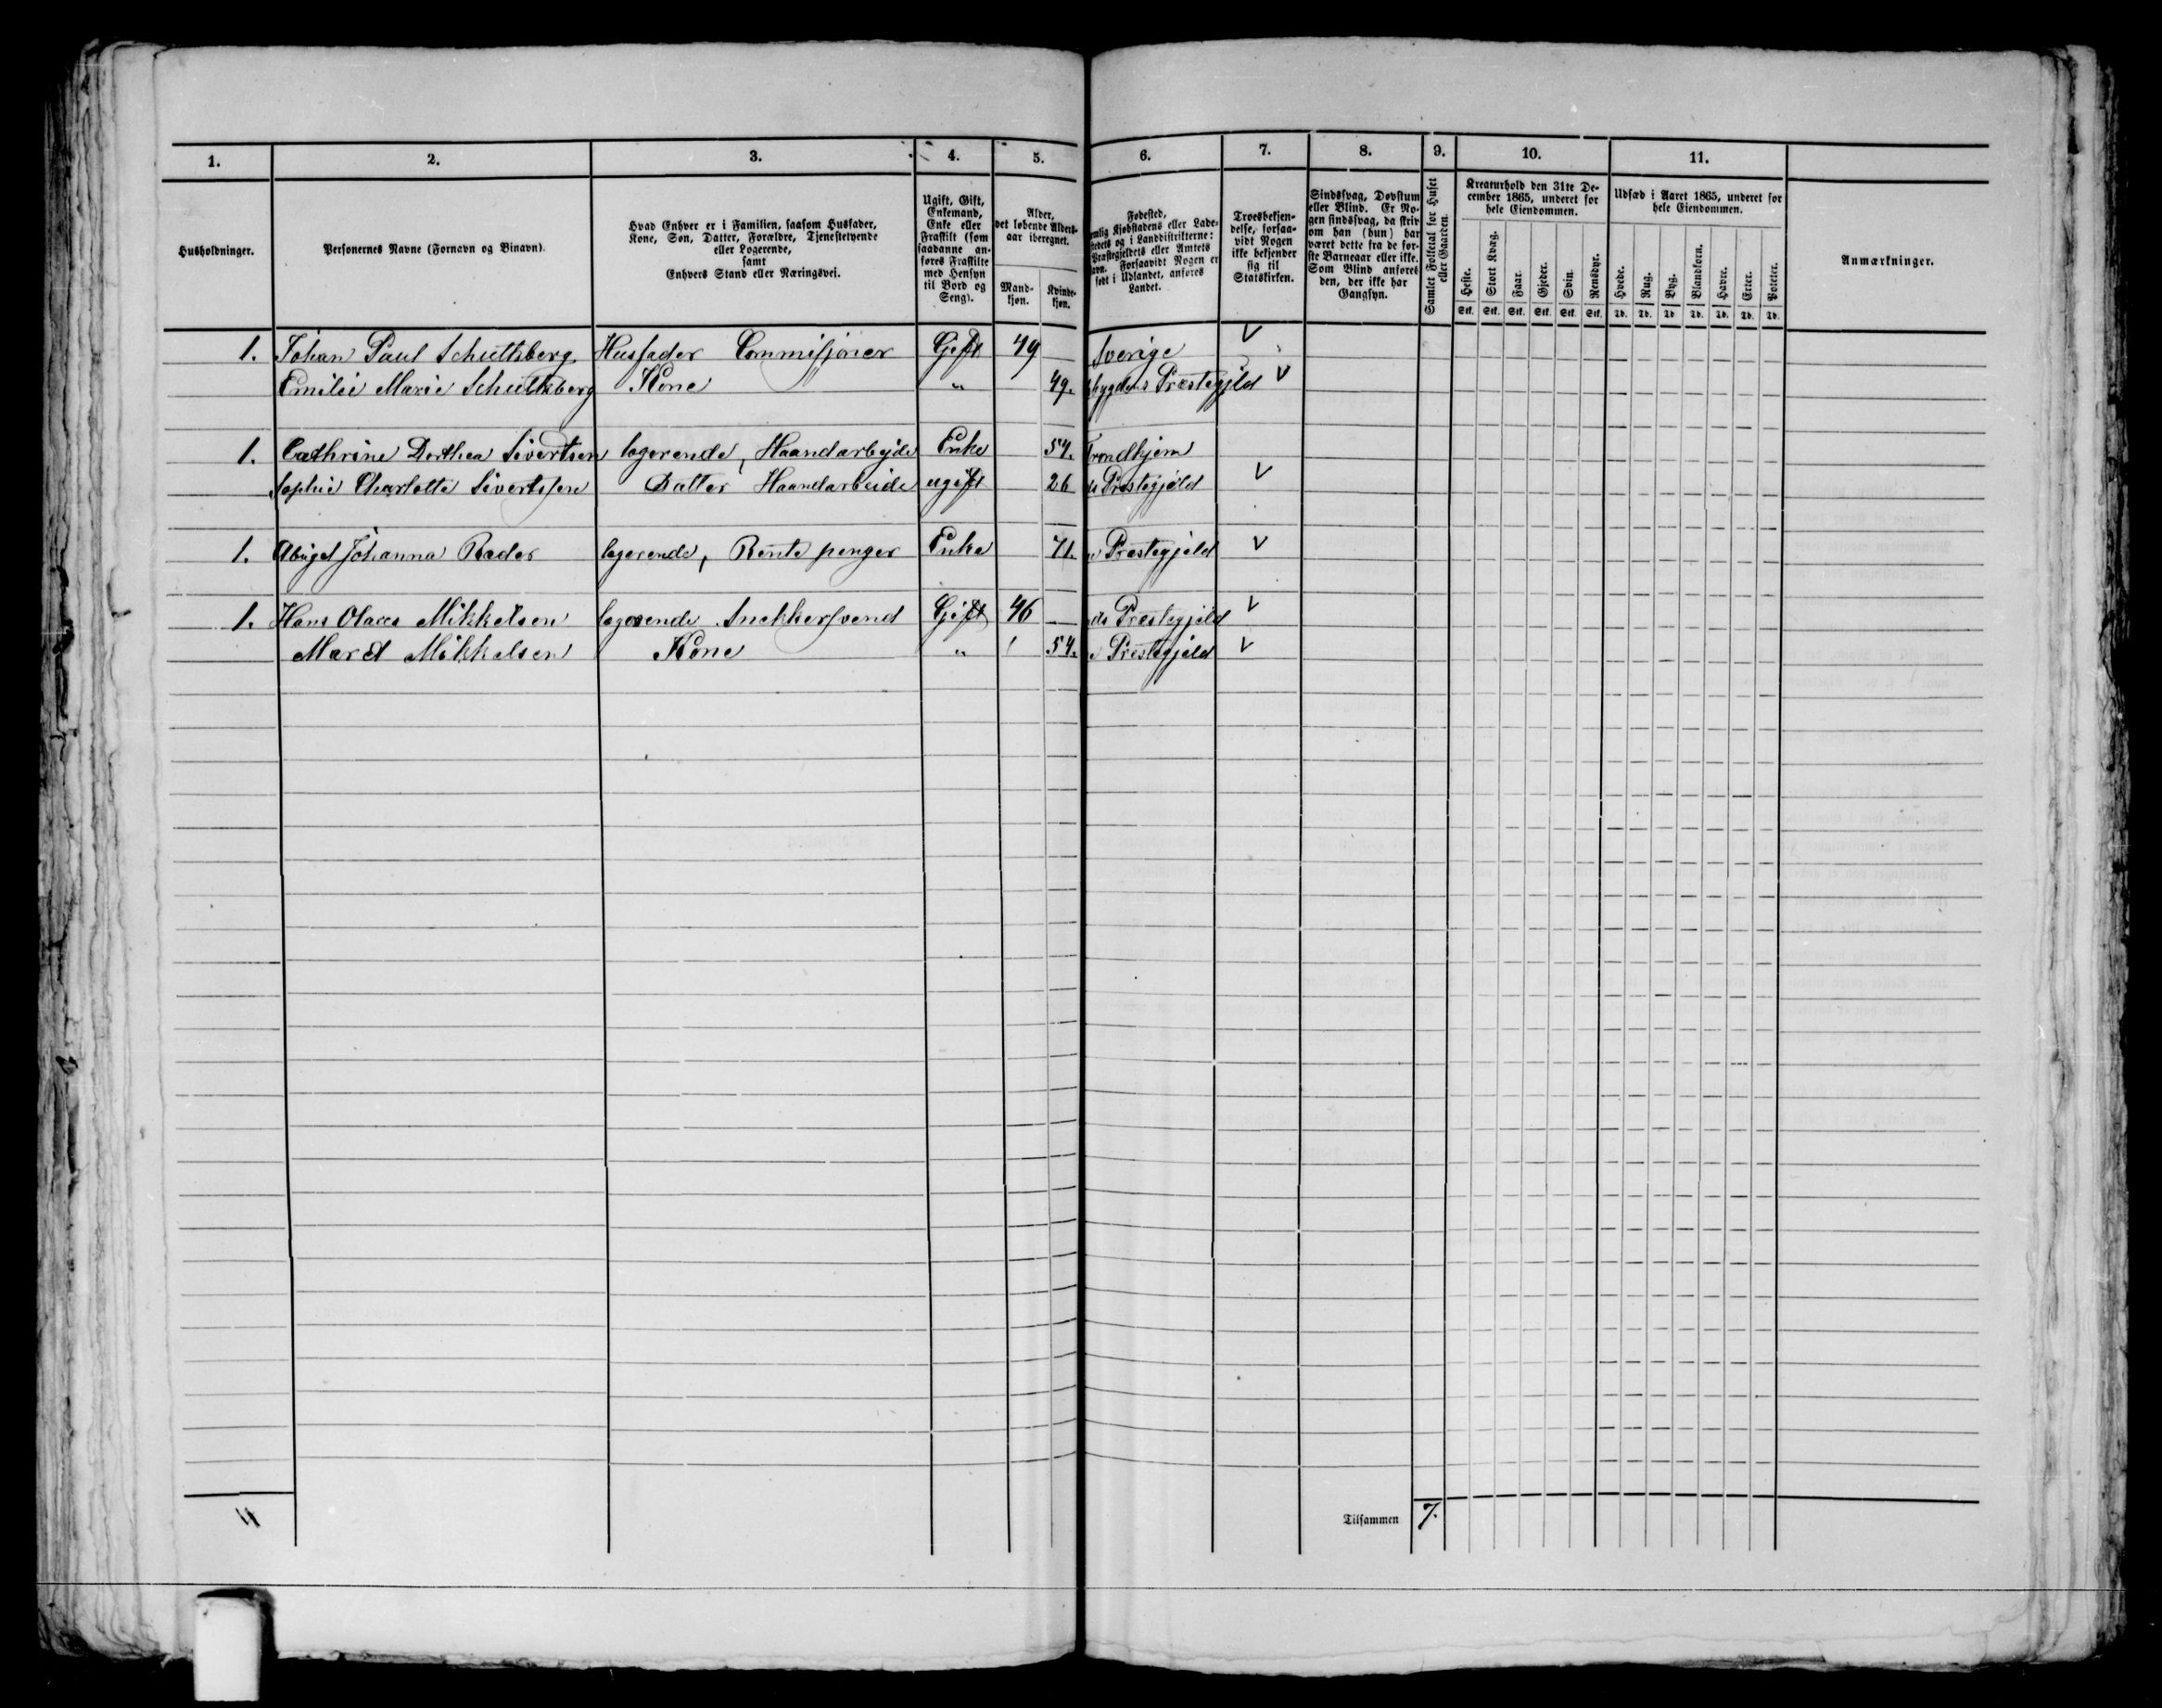 1. 2. 3. 4. 5. 6. 7. 8. 9. 10. 11.
Husholdninger.
Personernes Navne (Fornavn og Binavn).
Hvad Enhver er i Familien, saasom Husfader,
Kone, Søn, Datter, Forældre, Tjenestetyende
eller Logerende,
samt
Enhvers Stand eller Næringsvei.
Ugift, Gift,
Enkemand,
Enke eller
Fraskilt (som
saadanne an-
føres Fraskilte
med Hensyn
til Bord og
Seng).
Alder,
det løbende Alders-
aar iberegnet.
Mand-
kjøn.
Kvinde-
kjøn.
Fødested,
emlig Kjøbstadens eller Lade-
stedets og i Landdistrikterne:
Præstegjeldets eller Amtets
avn. Forsaavidt Nogen er
født i Udlandet, anføres
Landet.
Troesbekjen-
delse, forsaa-
vidt Nogen
ikke bekjender
sig til
Statskirken.
Sindssvag, Døvstum
eller Blind. Er No-
gen sindssvag, da skriv
om han (hun) har
været dette fra de før-
ste Barneaar eller ikke.
Som Blind anføres
den, der ikke har
Gangsyn.
Samlet Folketal for Huset
eller Gaarden.
Kreaturhold den 31te De-
cember 1865, underet for
hele Eiendommen.
Heste. Stort Kvæg. Faar. Gjeder. Svin. Rensdyr.
Stk. Stk. Stk. Stk. Stk. Stk.
Udsæd i Aaret 1865, underet for
hele Eiendommen.
Hvede. Rug. Byg. Blandkorn. Havre. Erter. Poteter.
Td. Td. Td. Td. Td. Td. Td.
Anmærkninger.
1. Johan Paul Schultzberg. Husfader Commisjonær Gift 49 Sverige V
Emilie Marie Schultzberg Kone " 49. bygdens Præstegjeld V
1. Cathrine Dorthea Sivertsen logerende, Haandarbejde Enke 54. Trondhjem
Sophie Charlotte Sivertsen Datter Haandarbeide ugift 26 ds Præstegjeld V
1. Abigel Johanna Rader logerende, Rente penger Enke 71. Præstegjeld V
1. Hans Olaus Mikkelsen logerende Snekkersvend Gift 46 ds Præstegjeld V
Maret Mikkelsen Kone " 54. Præstegjeld V
4
Tilsammen 7.